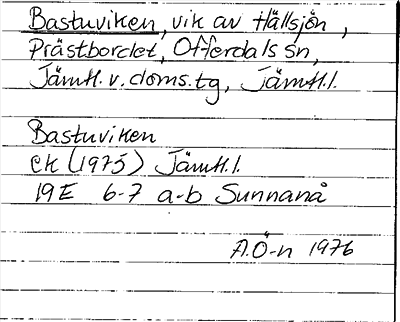 Bastuviken, vik av Hällsjön,
Prästbordet, Offerdals sn,
Jämtl. v. doms. tg, Jämtl. l.
Bastuviken
EK (1975) Jämtl. l.
19E 6-7 a-b Sunnanå
A.Ö-n 1976